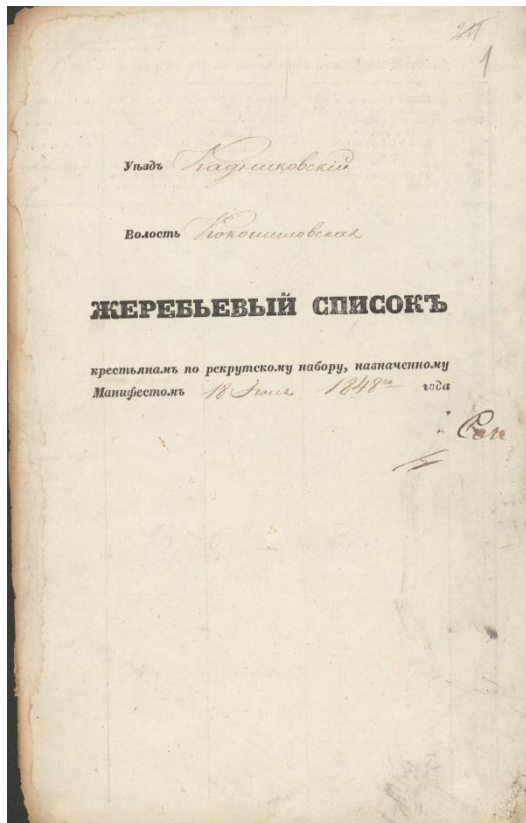 1
Уѣздъ Кадниковскій
Волость Кокошиловская
ЖЕРЕБЬЕВЫЙ СПИСОКЪ
крестьянамъ по рекрутскому набору, назначенному
Манифестомъ 18 Іюля 1848го года